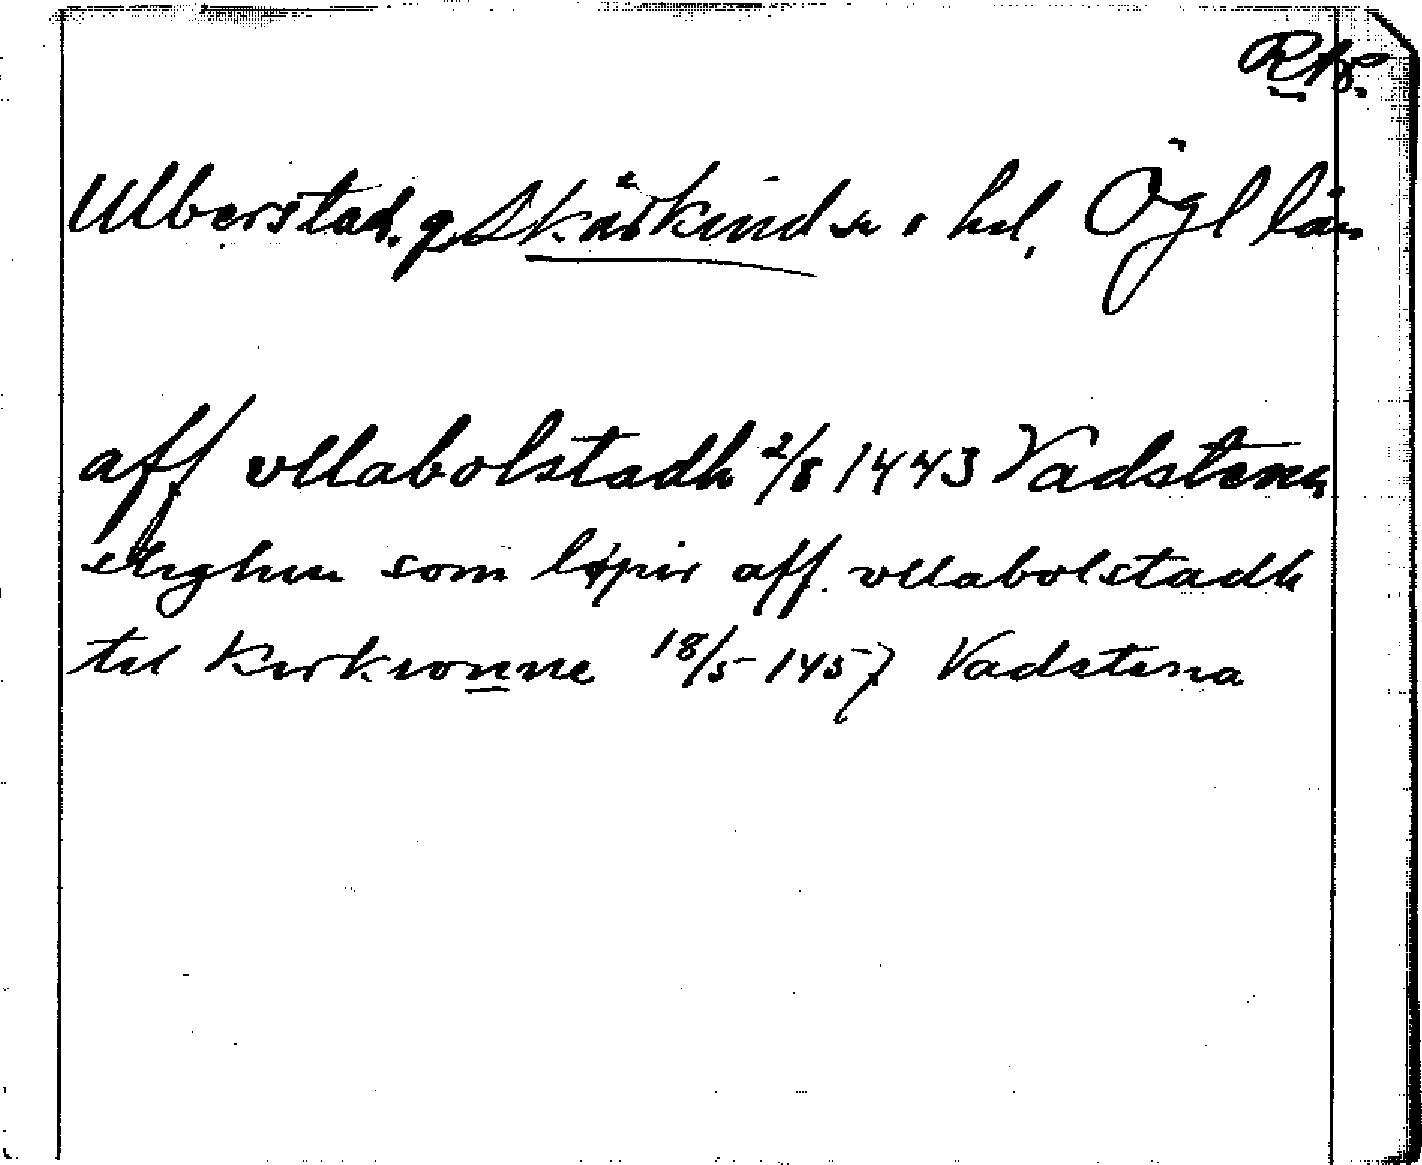 RAp.
Ulberstad. g. Skärkind sn o hd, Ögl län
aff vllabolstadh 2/8 1443 Vadstena
stighin som løpir aff vllabolstadh
til kirkionne 18/5 1457 Vadstena